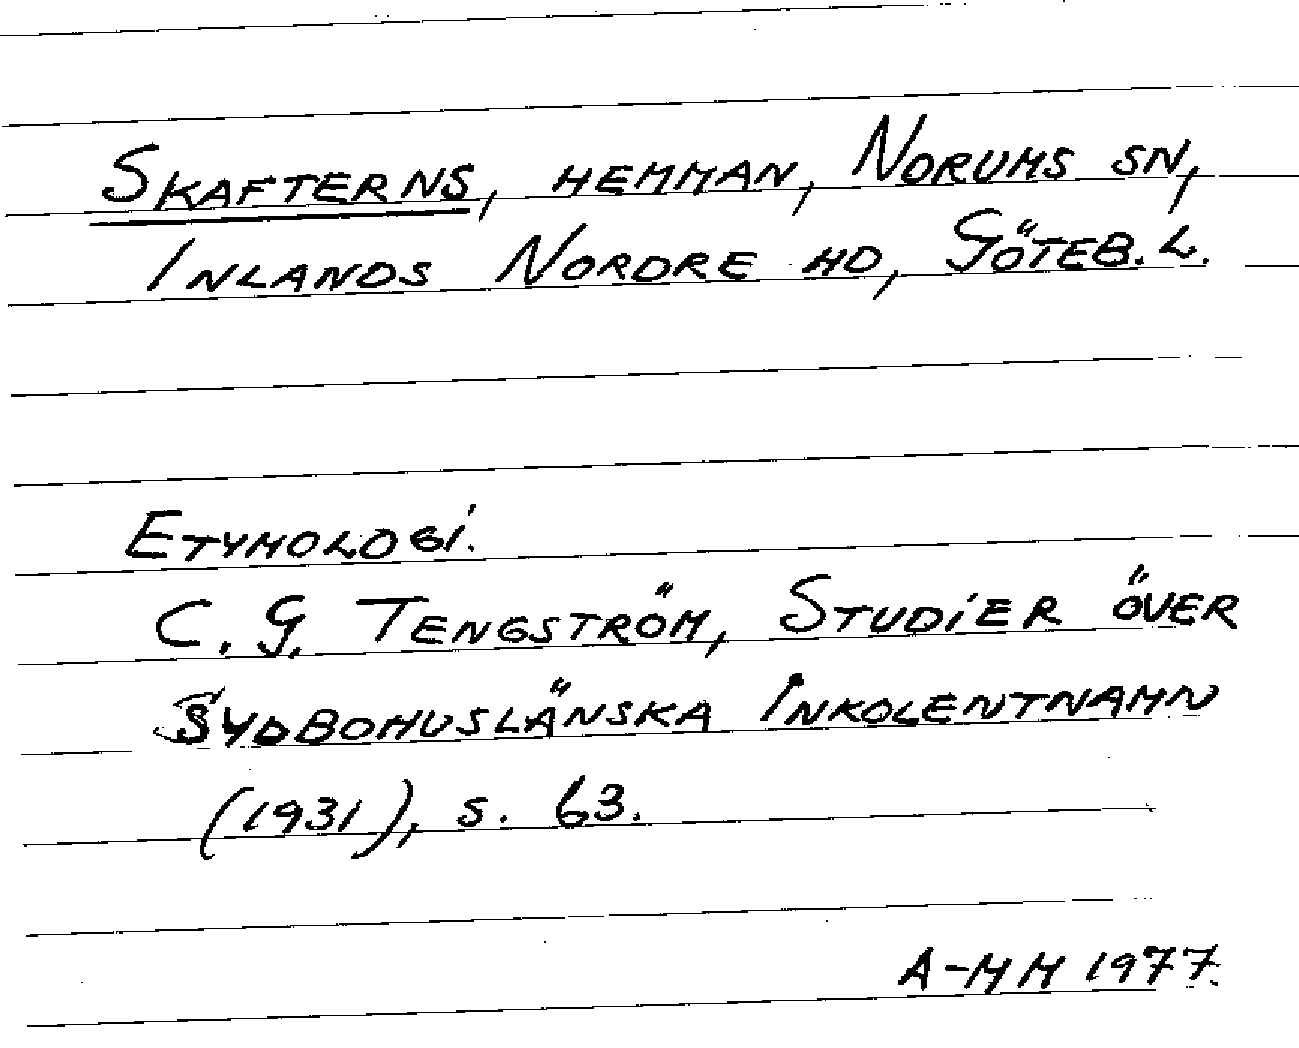 SKAFTERNS, HEMMAN, NORUMS SN,
INLANDS NORDRE HD, GÖTEB. L.
ETYMOLOGI.
C. G. TENGSTRÖM, STUDIER ÖVER
SYDBOHUSLÄNSKA INKOLENTNAMN
(1931), s. 63.
A-MM 1977.